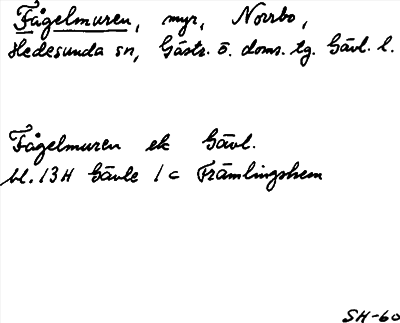 Fågelmuren, myr, Norrbo,
Hedesunda sn, Gästr. ö. doms. tg. Gävl. l.
Fågelmuren ek Gävl.
bl. 13H Gävle 1 c Främlingshem
SH-60